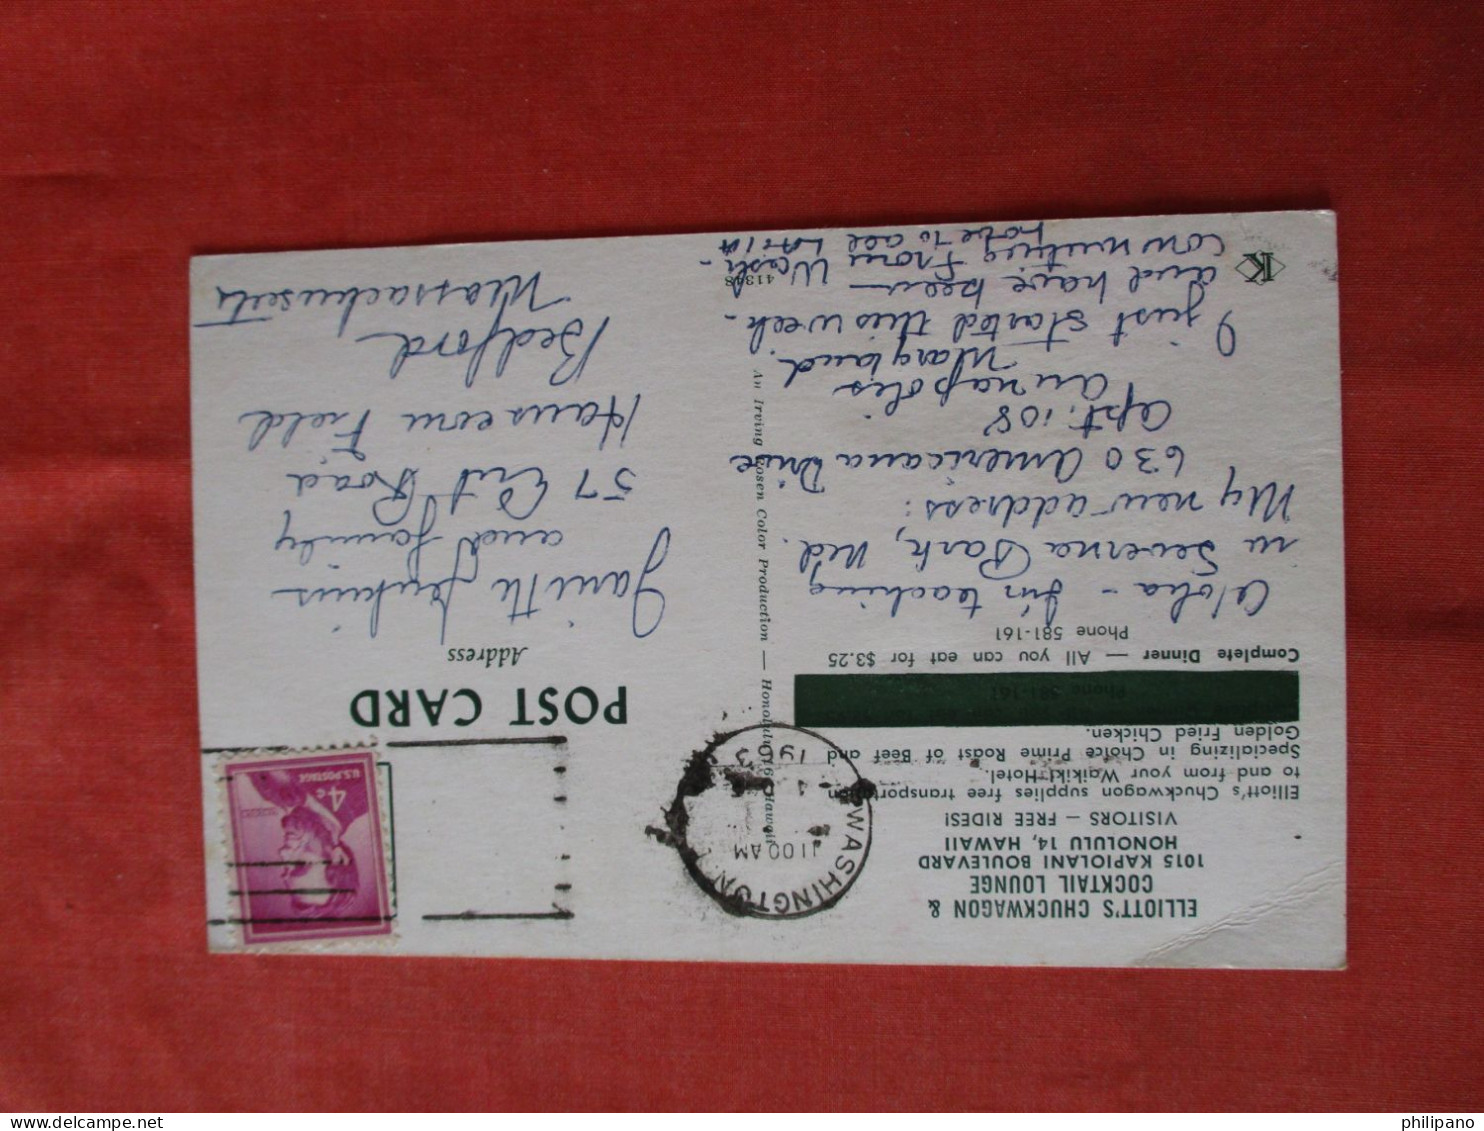 ELLIOTT'S CHUCKWAGON &
COCKTAIL LOUNGE
1015 KAPIOLANI BOULEVARD
HONOLULU 14, HAWAII
VISITORS — FREE RIDES!
Elliott's Chuckwagon supplies free transportation
to and from your Waikiki Hotel.
Specializing in Choice Prime Roast of Beef and
Golden Fried Chicken.
Phone 581-161
Complete Dinner — All you can eat for $3.25
Phone 581-161
Aloha - I'm teaching
in Severna Park, Md.
My new address:
630 Americana Drive
Apt. 108
Annapolis
Maryland.
I just started this week.
and have been
commuting from Wash-
here to
41348
K
An Irving Rosen Color Production — Honolulu 16, Hawaii
WASHINGTON
11:00 AM
1963
U.S. POSTAGE
4c
POST CARD
Address
Janith Jenkins
and family
57 Road
Hanscom Field
Bedford
Massachusetts
philipano